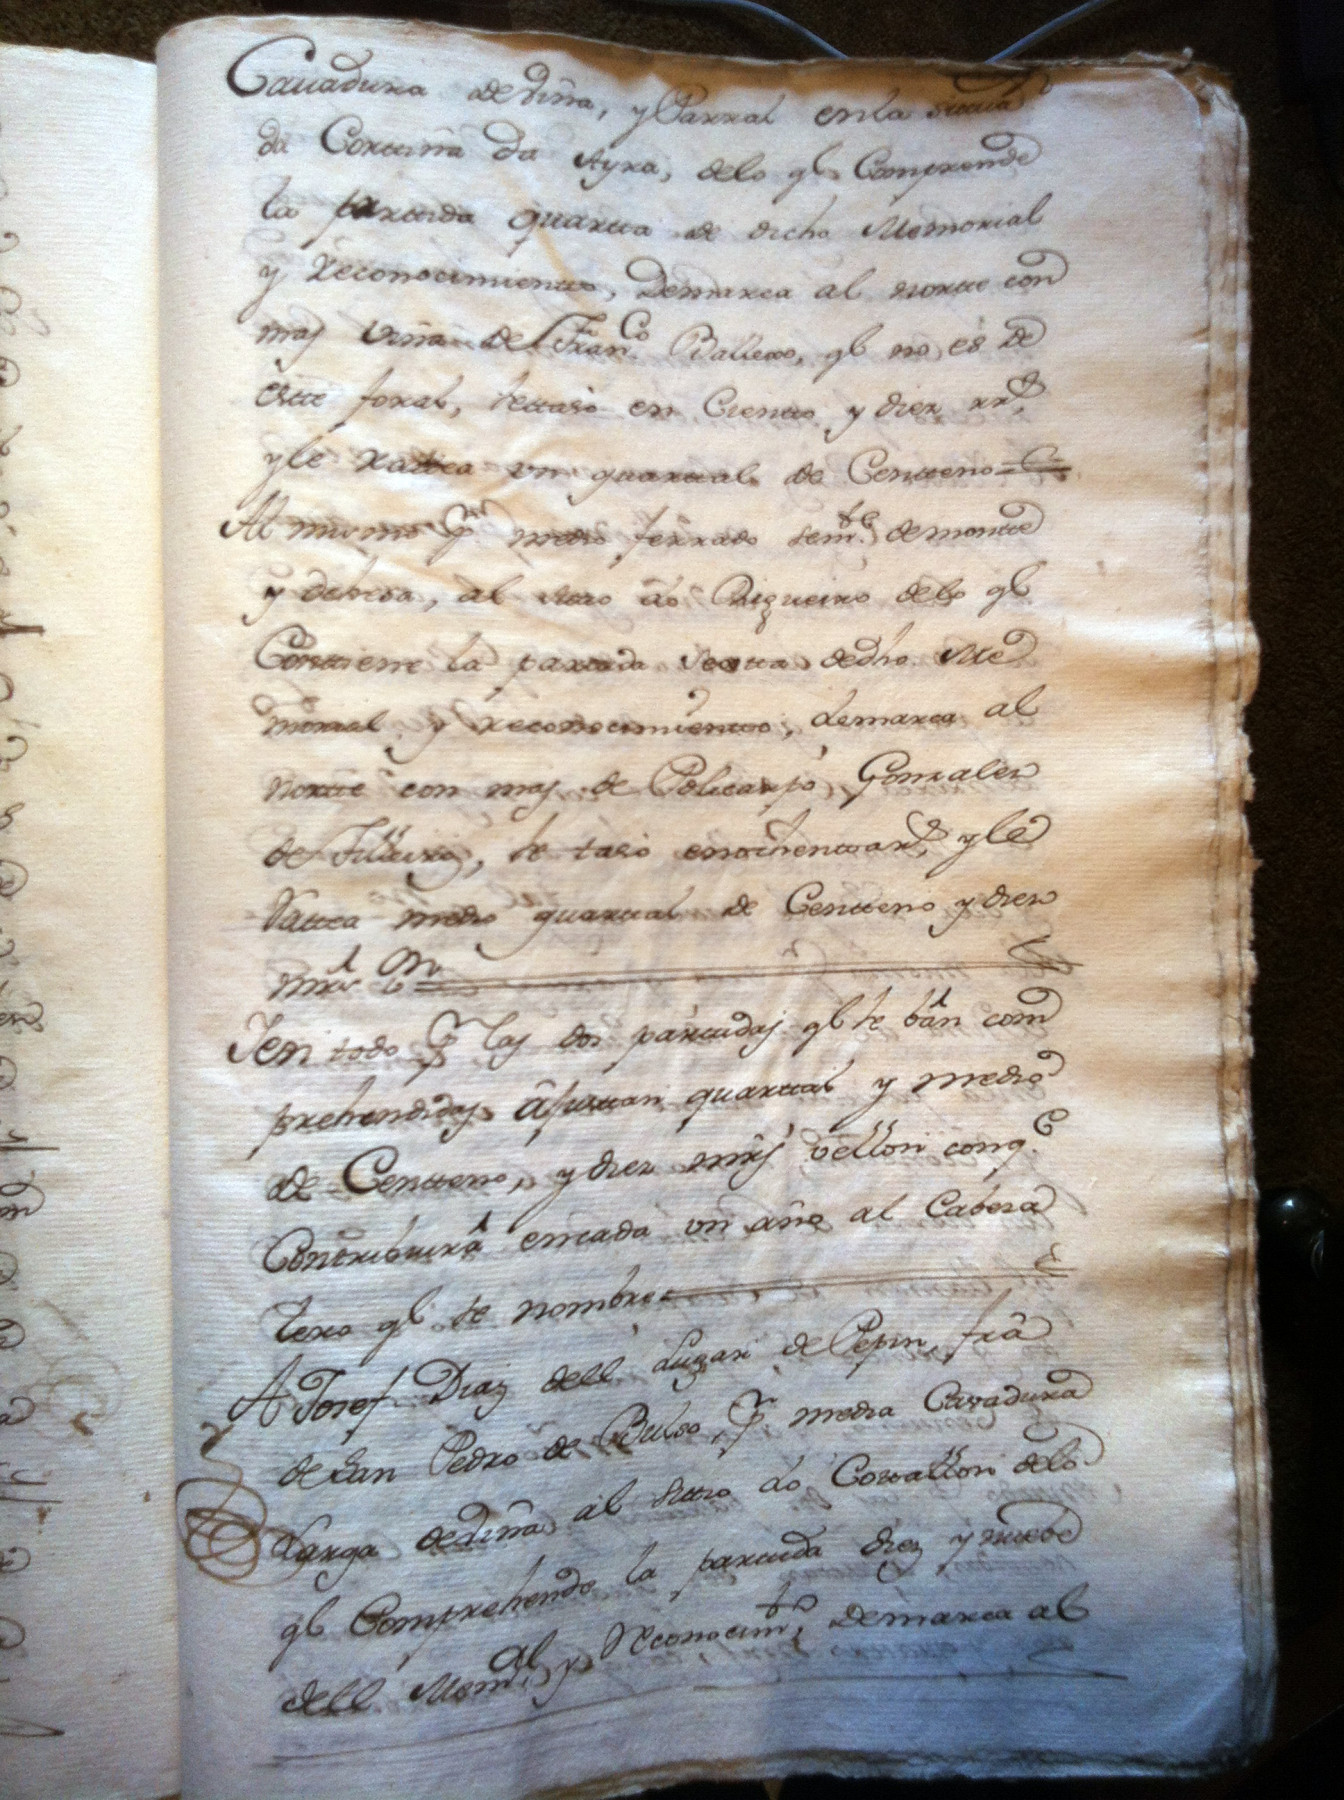 Cauadura de viña, y Parral en la
da Cortiña da Ayra, delo q.e Comprende
la partida quartta de dicho Memorial
y Reconocimientto, Demarca al nortte con
mas viña de Fran.co Balledo, q.e no es de
estte foral, settasó en Cientto y diez rr.s
y le Rattea un quarttal de Centteno
Al mismo p.r medio ferrado sem.te de montte
y dehesa, al sittio do Rigueiro delo q.e
Conttiene la partida sextta dedho Me
morial y reconocimientto, demarca al
nortte con mas de Policarpo Gonzalez
de se taso enochenttarr.s y le
Rattea medio quarttal de Centteno y diez
mrs. Vn
Yen todo p.r las dos partidas q.e se bán com
prehendidas âjusttan quarttal y medio
de Centteno, y diez mrs vellon conq.e
Conttribuirá encada un año al Cabeza
lero q.e se nombre
A Josef Diaz dell Lugar de Pepin, frâ
de San Pedro de Bulso p.r media Cavadura
Larga deviña al sittio do Covallon delo
q.e Comprehende la partida diez y nuebe
dell Mem.al y Reconocim.to, Demarca al